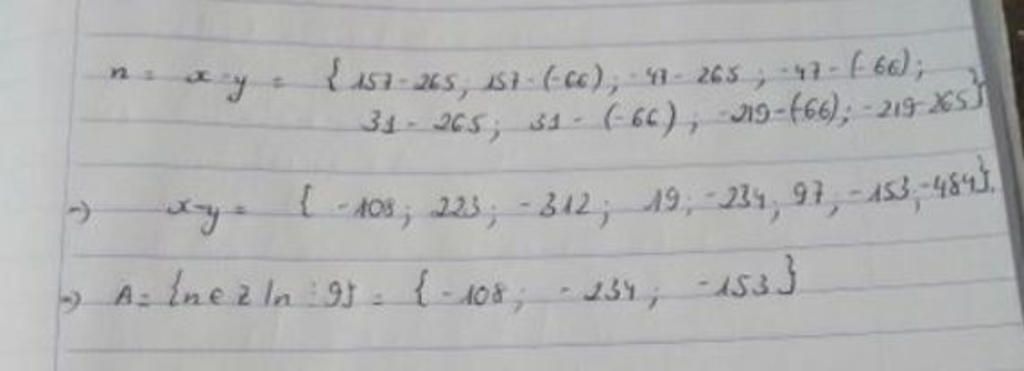 n = x - y = { 157 - 265; 157 - (-66); -47 - 265; -47 - (-66);
31 - 265; 31 - (-66); -219 - (-66); -219 - 265}
=> x-y = { -108; 223; -312; 19; -234; 97; -153; -484}.
=> A = {n ∈ Z | n ⋮ 9} = { -108; -234; -153}